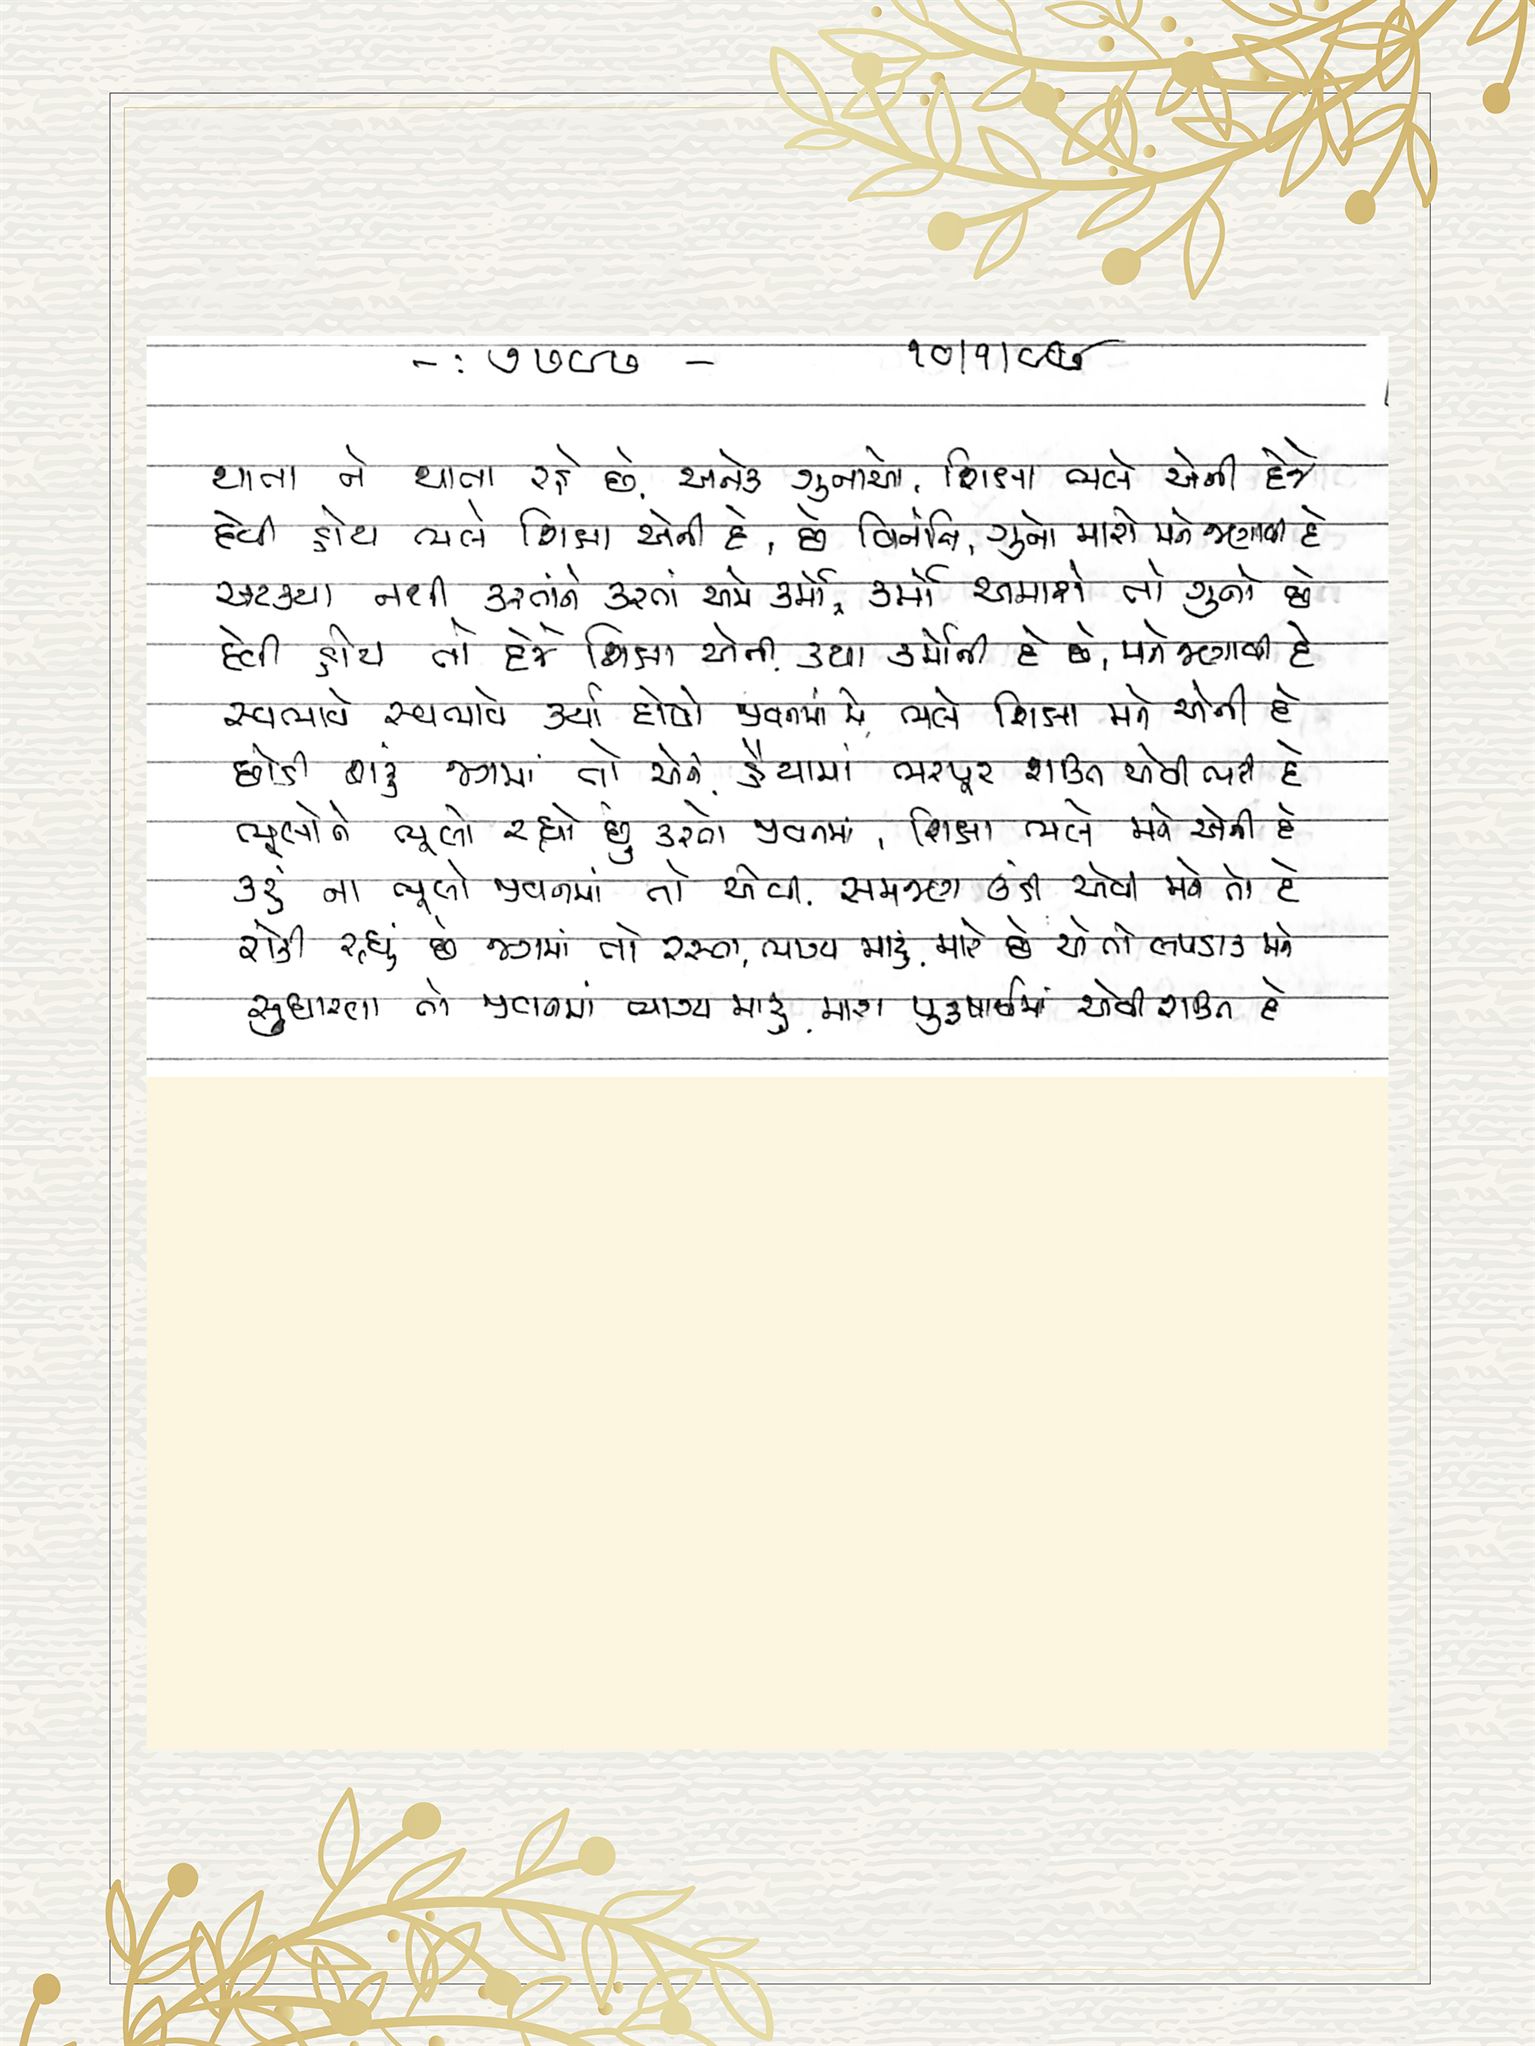 -: ૭૭૯૭ -
થાતા ને થાતા રહે છે, અનેક ગુનાઓ, શિક્ષા ભલે એની દેજે
દેવી હોય ભલે શિક્ષા એની દે, છે વિનંતિ, ગુનો મારો મને જણાવી દે
અટક્યા નથી કરતાંને કરતાં અમે કર્મો, કર્મો અમારો તો ગુનો છે
દેવી હોય તો દેજે શિક્ષા એની, કયા કર્મોની દે છે, મને જણાવી દે
સ્વભાવે સ્વભાવે કર્યા દોષો જીવનમાં મેં, ભલે શિક્ષા મને એની દે
છોડી શકું જગમાં તો એને, હૈયામાં ભરપૂર શક્તિ એવી ભરી દે
ભૂલોને ભૂલો રહ્યો છું કરતો જીવનમાં, શિક્ષા ભલે મને એની દે
કરું ના ભૂલો જીવનમાં તો એવી, સમજણ ઉંડી એવી મને તો દે
રોકી રહ્યું છે જગમાં તો રસ્તા, ભાગ્ય મારું, મારે છે એ તો લપડાક મને
સુધારવા તો જીવનમાં ભાગ્ય મારું, મારા પુરુષાર્થમાં એવી શક્તિ દે